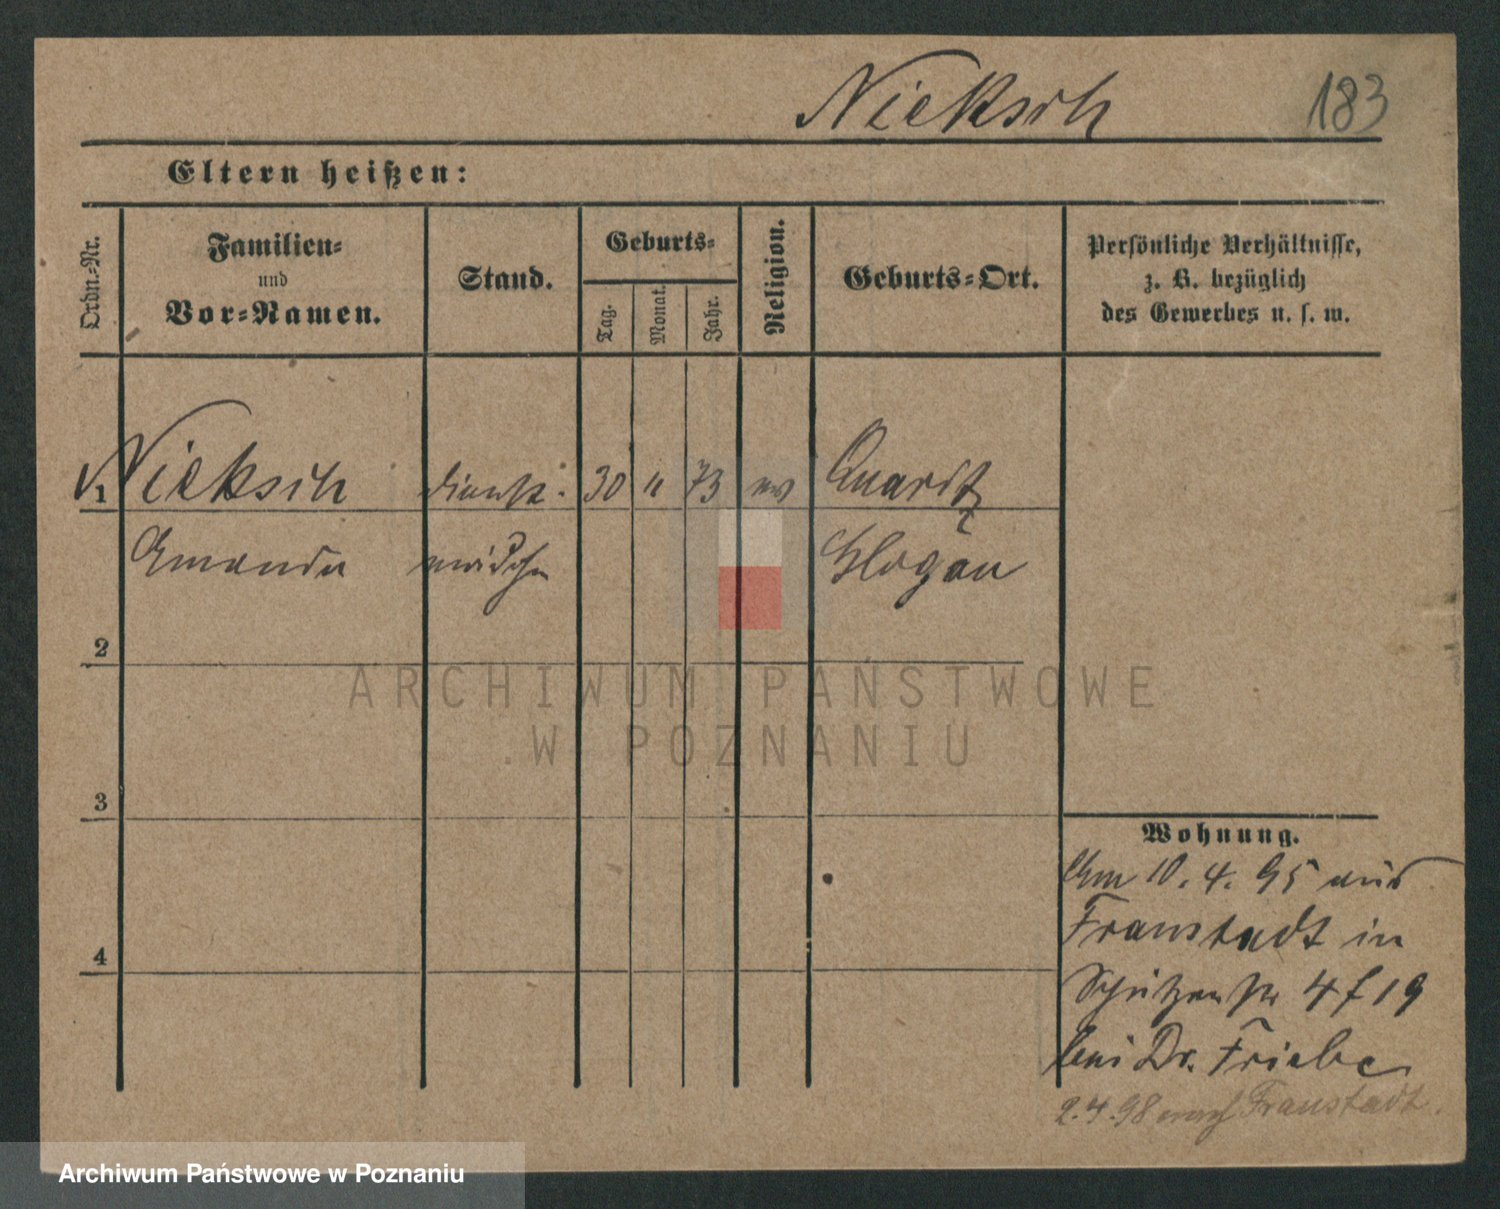 Nieksch 183
Eltern heißen:
Ordn.=Nr.
Familien=
und
Vor=Namen.
Stand.
Geburts=
Tag.
Monat.
Jahr.
Religion.
Geburts=Ort.
Persönliche Verhältnisse,
z. B. bezüglich
des Gewerbes u. s. w.
1 Nieksch dienst- 30 73 ev Quaritz
Amanda mädchen Glogau
2
3
4
Wohnung.
Am 10. 4. 95 aus
Fraustadt in
Schützenstr 4 f 19
bei Dr. Friebe
2.4.98 nach Fraustadt.
ARCHIWUM PAŃSTWOWE
W POZNANIU
Archiwum Państwowe w Poznaniu